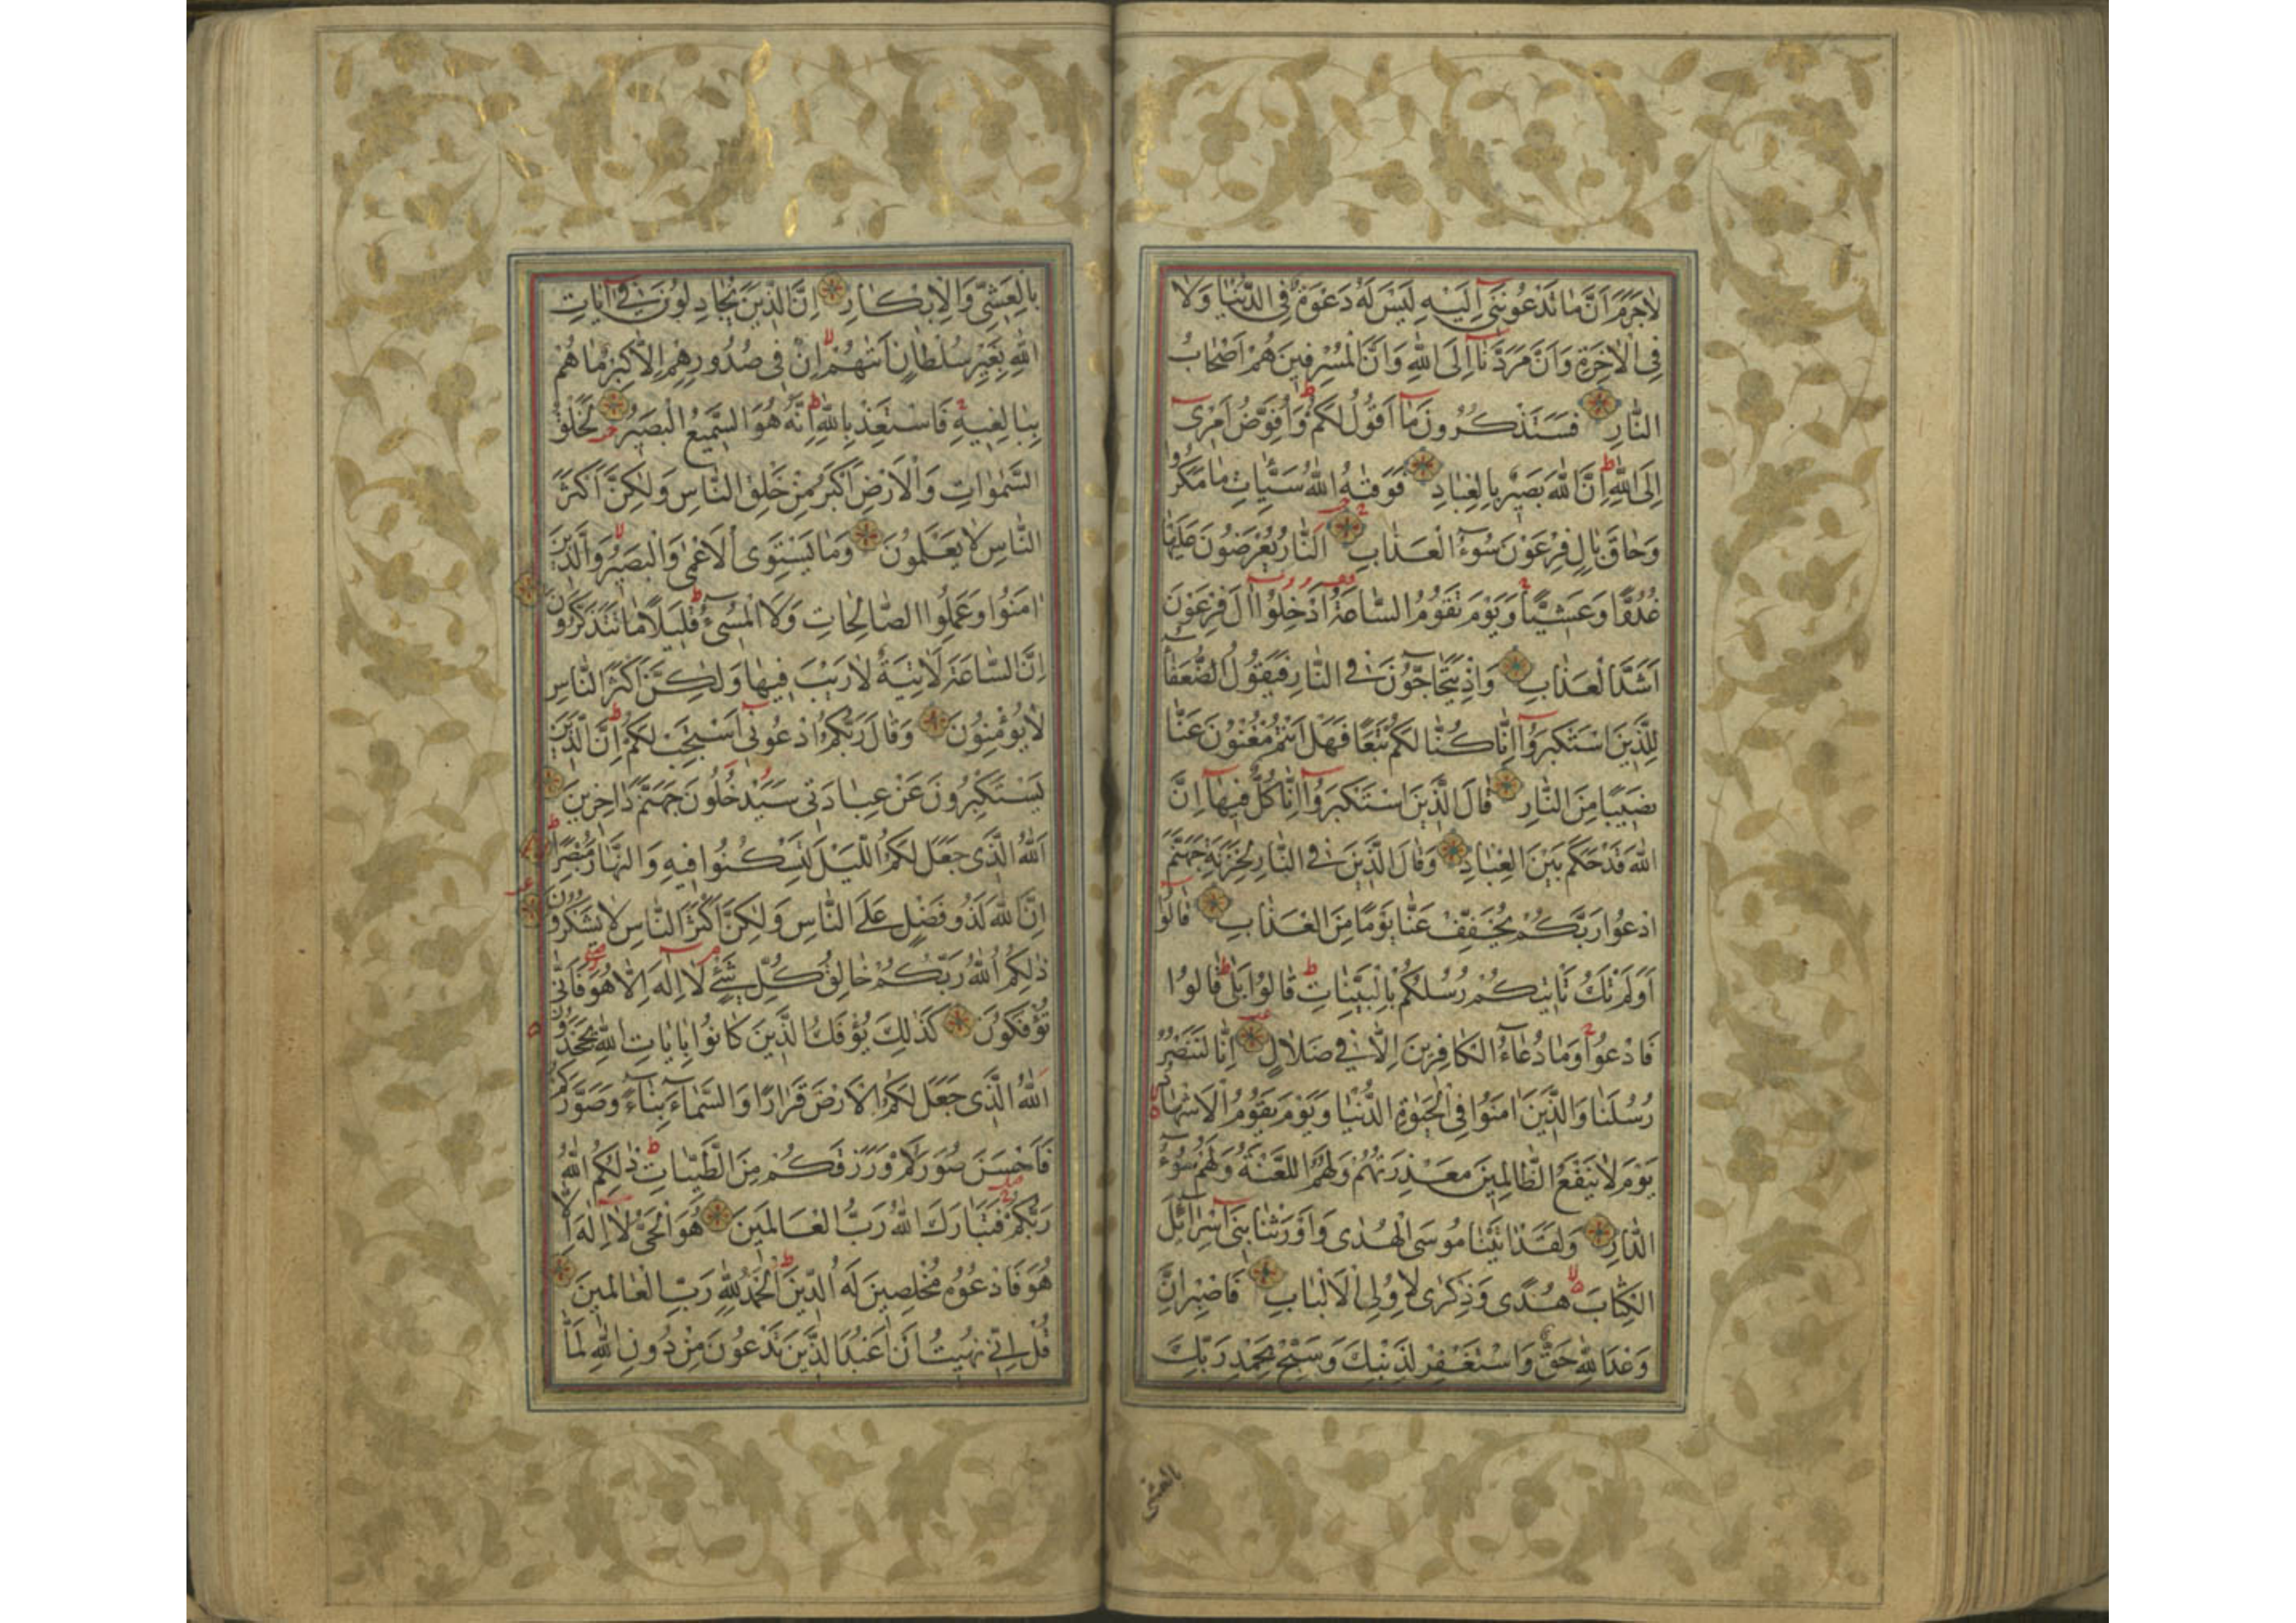 لَاجَرَمَ اَنَّ مَا تَدْعُونَنِىٓ اِلَيْهِ لَيْسَ لَهُ دَعْوَةٌ فِى الدُّنْيَا وَلَا
فِى الْاٰخِرَةِ وَاَنَّ مَرَدَّنَآ اِلَى اللّٰهِ وَاَنَّ الْمُسْرِفِينَ هُمْ اَصْحَابُ
النَّارِ فَسَتَذْكُرُونَ مَآ اَقُولُ لَكُمْ ط وَاُفَوِّضُ اَمْرِىٓ
اِلَى اللّٰهِ ط اِنَّ اللّٰهَ بَصِيرٌ بِالْعِبَادِ فَوَقٰيهُ اللّٰهُ سَيِّئَاتِ مَا مَكَرُوا
وَحَاقَ بِاٰلِ فِرْعَوْنَ سُوٓءُ الْعَذَابِ اَلنَّارُ يُعْرَضُونَ عَلَيْهَا
غُدُوًّا وَعَشِيًّا وَيَوْمَ تَقُومُ السَّاعَةُ اَدْخِلُوٓا اٰلَ فِرْعَوْنَ
اَشَدَّ الْعَذَابِ وَاِذْ يَتَحَآجُّونَ فِى النَّارِ فَيَقُولُ الضُّعَفَآءُ
لِلَّذِينَ اسْتَكْبَرُوٓا اِنَّا كُنَّا لَكُمْ تَبَعًا فَهَلْ اَنْتُمْ مُغْنُونَ عَنَّا
نَصِيبًا مِنَ النَّارِ قَالَ الَّذِينَ اسْتَكْبَرُوٓا اِنَّا كُلٌّ فِيهَآ اِنَّ
اللّٰهَ قَدْ حَكَمَ بَيْنَ الْعِبَادِ وَقَالَ الَّذِينَ فِى النَّارِ لِخَزَنَةِ جَهَنَّمَ
ادْعُوا رَبَّكُمْ يُخَفِّفْ عَنَّا يَوْمًا مِنَ الْعَذَابِ قَالُوٓا
اَوَلَمْ تَكُ تَاْتِيكُمْ رُسُلُكُمْ بِالْبَيِّنَاتِ ط قَالُوا بَلٰى ط قَالُوا
فَادْعُوا وَمَا دُعَآءُ الْكَافِرِينَ اِلَّا فِى ضَلَالٍ اِنَّا لَنَنْصُرُ
رُسُلَنَا وَالَّذِينَ اٰمَنُوا فِى الْحَيٰوةِ الدُّنْيَا وَيَوْمَ يَقُومُ الْاَشْهَادُ
يَوْمَ لَا يَنْفَعُ الظَّالِمِينَ مَعْذِرَتُهُمْ وَلَهُمُ اللَّعْنَةُ وَلَهُمْ سُوٓءُ
الدَّارِ وَلَقَدْ اٰتَيْنَا مُوسَى الْهُدٰى وَاَوْرَثْنَا بَنِىٓ اِسْرَآئِلَ
الْكِتَابَ هُدًى وَذِكْرٰى لِاُولِى الْاَلْبَابِ فَاصْبِرْ اِنَّ
وَعْدَ اللّٰهِ حَقٌّ وَاسْتَغْفِرْ لِذَنْبِكَ وَسَبِّحْ بِحَمْدِ رَبِّكَ
بالعشى
بِالْعَشِىِّ وَالْاِبْكَارِ اِنَّ الَّذِينَ يُجَادِلُونَ فِىٓ اٰيَاتِ
اللّٰهِ بِغَيْرِ سُلْطَانٍ اَتٰهُمْ لا اِنْ فِى صُدُورِهِمْ اِلَّا كِبْرٌ مَا هُمْ
بِبَالِغِيهِ فَاسْتَعِذْ بِاللّٰهِ ط اِنَّهُ هُوَ السَّمِيعُ الْبَصِيرُ لَخَلْقُ
السَّمٰوَاتِ وَالْاَرْضِ اَكْبَرُ مِنْ خَلْقِ النَّاسِ وَلٰكِنَّ اَكْثَرَ
النَّاسِ لَا يَعْلَمُونَ وَمَا يَسْتَوِى الْاَعْمٰى وَالْبَصِيرُ لا وَالَّذِينَ
اٰمَنُوا وَعَمِلُوا الصَّالِحَاتِ وَلَا الْمُسِىٓءُ ط قَلِيلًا مَا تَتَذَكَّرُونَ
اِنَّ السَّاعَةَ لَاٰتِيَةٌ لَا رَيْبَ فِيهَا وَلٰكِنَّ اَكْثَرَ النَّاسِ
لَا يُؤْمِنُونَ وَقَالَ رَبُّكُمُ ادْعُونِىٓ اَسْتَجِبْ لَكُمْ ط اِنَّ الَّذِينَ
يَسْتَكْبِرُونَ عَنْ عِبَادَتِى سَيَدْخُلُونَ جَهَنَّمَ دَاخِرِينَ
اَللّٰهُ الَّذِى جَعَلَ لَكُمُ اللَّيْلَ لِتَسْكُنُوا فِيهِ وَالنَّهَارَ مُبْصِرًا ط
اِنَّ اللّٰهَ لَذُو فَضْلٍ عَلَى النَّاسِ وَلٰكِنَّ اَكْثَرَ النَّاسِ لَا يَشْكُرُونَ
ذٰلِكُمُ اللّٰهُ رَبُّكُمْ خَالِقُ كُلِّ شَىْءٍ لَآ اِلٰهَ اِلَّا هُوَ فَاَنّٰى
تُؤْفَكُونَ كَذٰلِكَ يُؤْفَكُ الَّذِينَ كَانُوا بِاٰيَاتِ اللّٰهِ يَجْحَدُونَ
اَللّٰهُ الَّذِى جَعَلَ لَكُمُ الْاَرْضَ قَرَارًا وَالسَّمَآءَ بِنَآءً وَصَوَّرَكُمْ
فَاَحْسَنَ صُوَرَكُمْ وَرَزَقَكُمْ مِنَ الطَّيِّبَاتِ ط ذٰلِكُمُ اللّٰهُ
رَبُّكُمْ فَتَبَارَكَ اللّٰهُ رَبُّ الْعَالَمِينَ هُوَ الْحَىُّ لَآ اِلٰهَ اِلَّا
هُوَ فَادْعُوهُ مُخْلِصِينَ لَهُ الدِّينَ ط اَلْحَمْدُ لِلّٰهِ رَبِّ الْعَالَمِينَ
قُلْ اِنِّى نُهِيتُ اَنْ اَعْبُدَ الَّذِينَ تَدْعُونَ مِنْ دُونِ اللّٰهِ لَمَّا